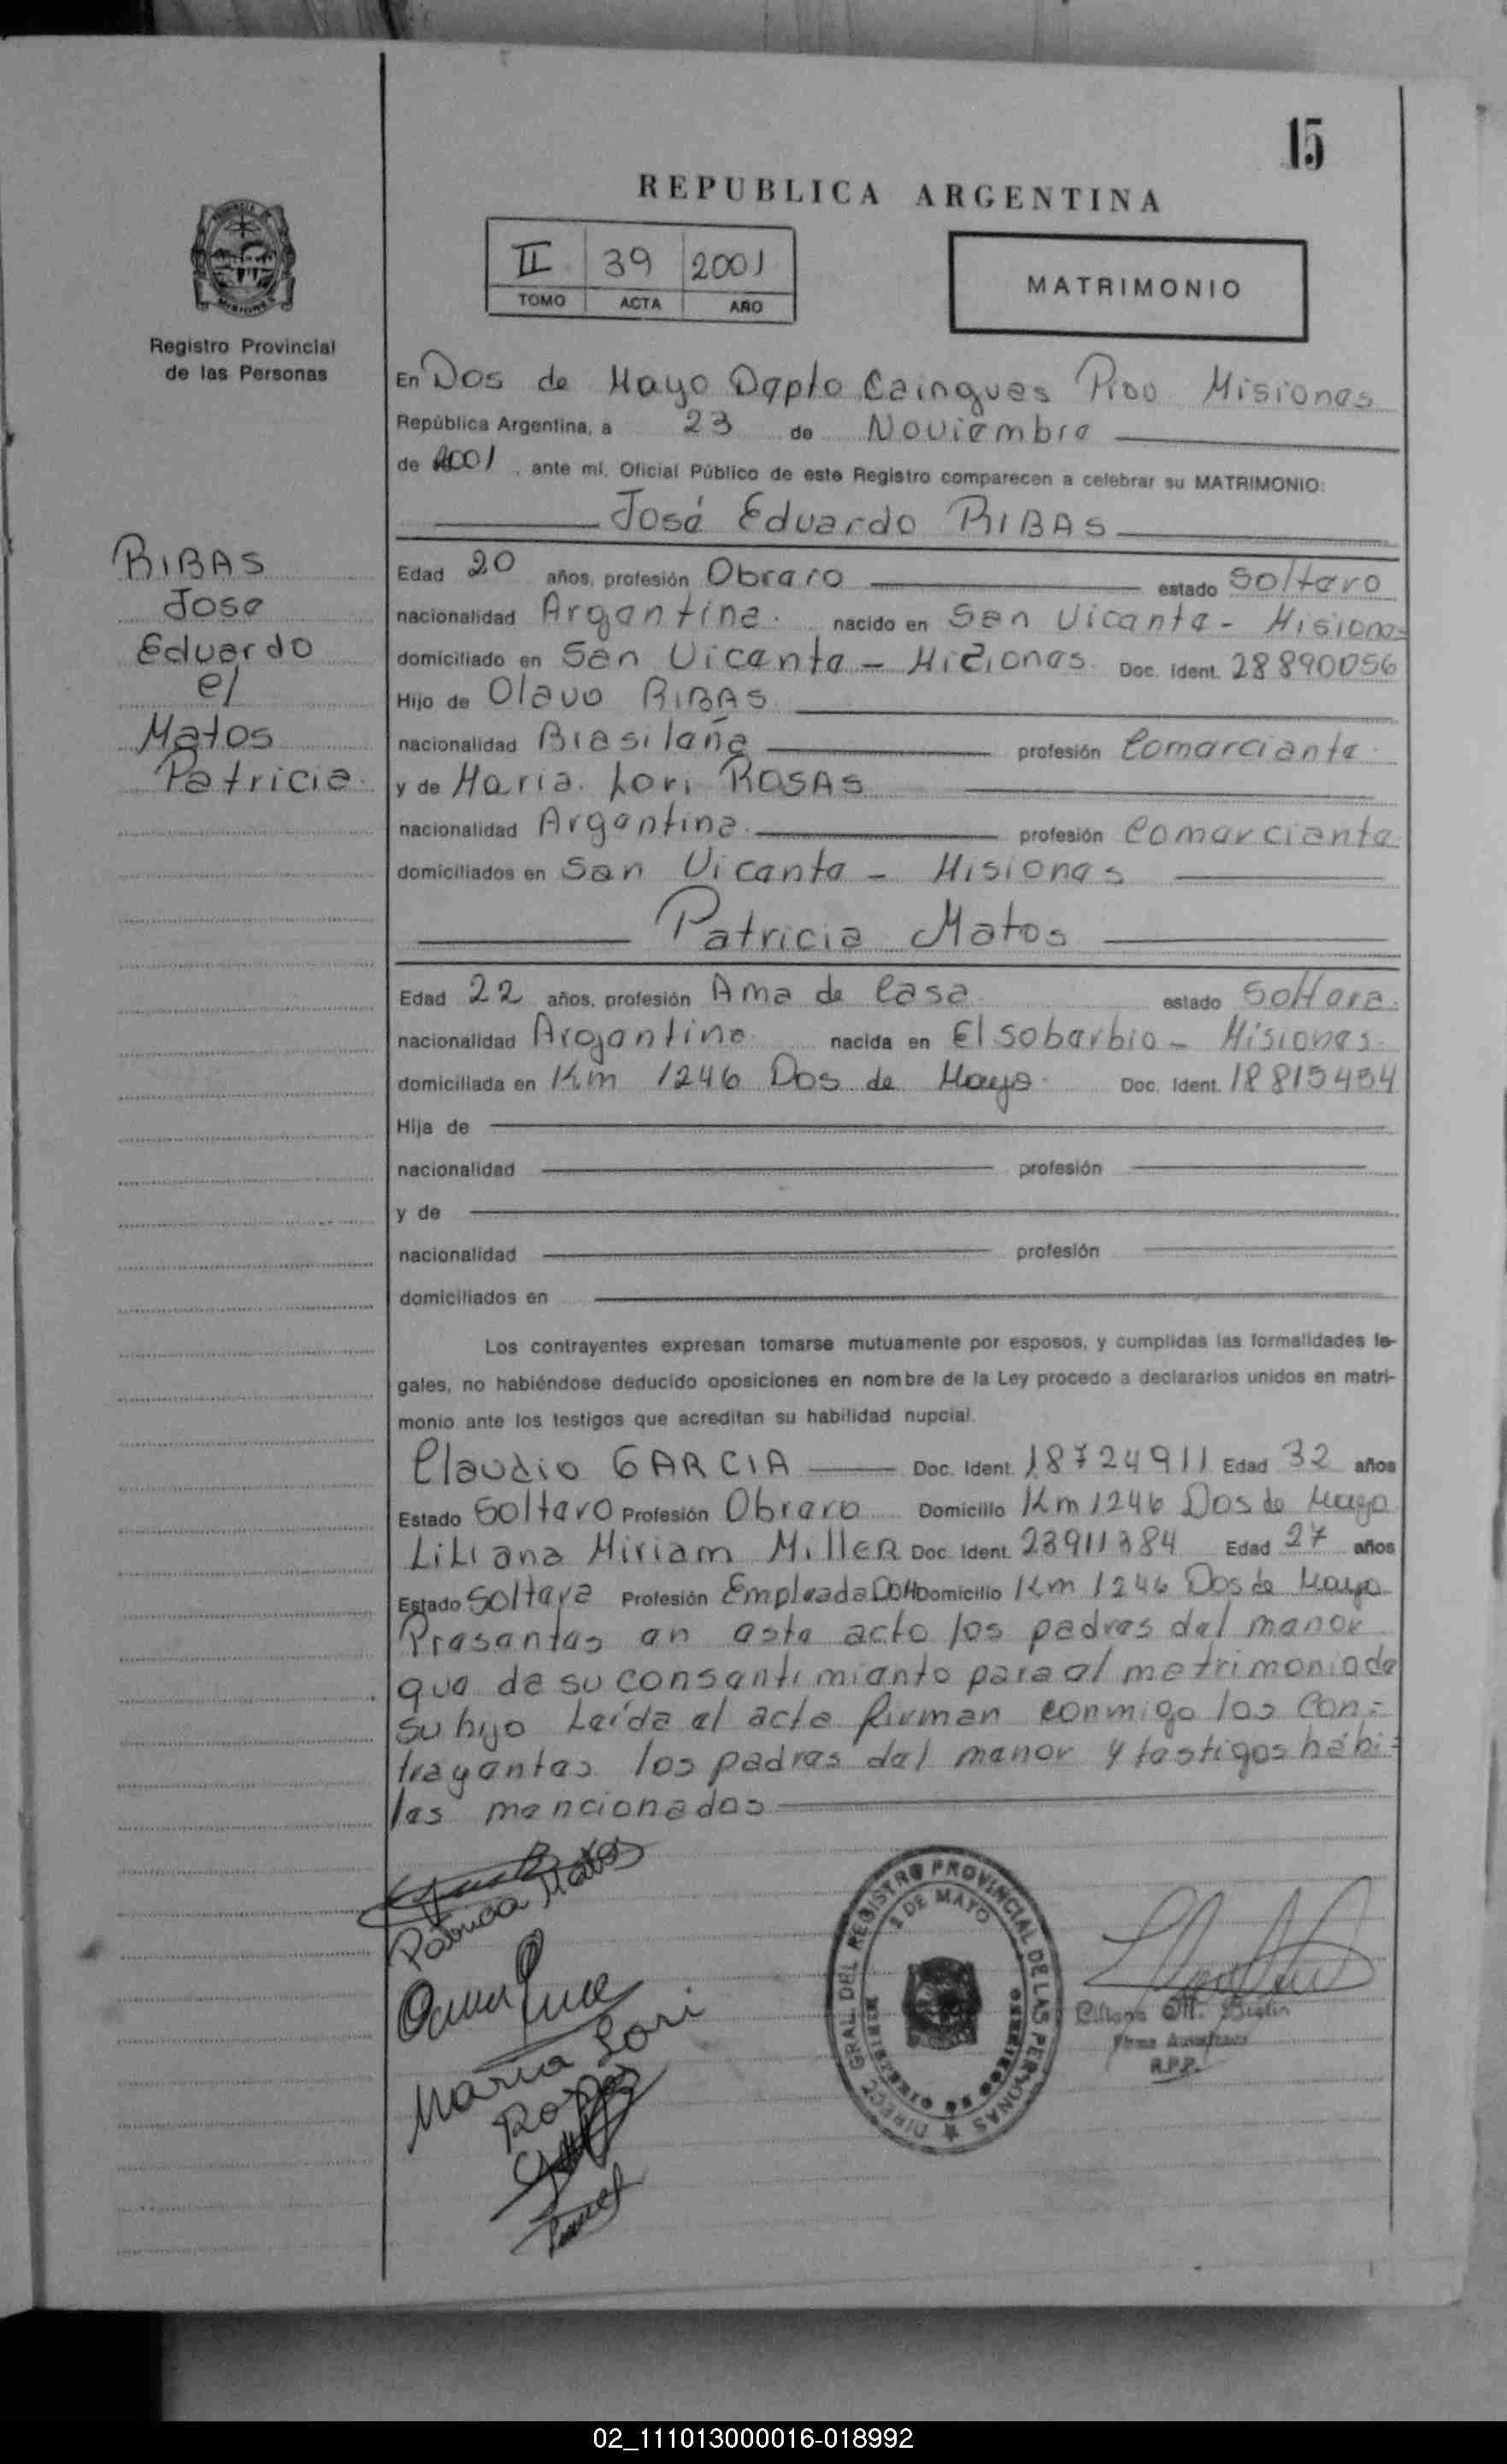 15
REPUBLICA ARGENTINA
II 39 2001
TOMO ACTA AÑO
MATRIMONIO
Registro Provincial
de las Personas
RIBAS
Jose
Eduardo
el
Matos
Patricia
En Dos de Mayo Dapto Caingues Pioo Misiones
República Argentina, a 23 de Noviembre
de 2001, ante mí, Oficial Público de este Registro comparecen a celebrar su MATRIMONIO:
José Eduardo RIBAS
Edad 20 años, profesión Obrero estado Soltero
nacionalidad Argentina. nacido en San Vicente - Misiones
domiciliado en San Vicente - Misiones. Doc. Ident. 28890056
Hijo de Olavo RIBAS
nacionalidad Brasileña profesión Comerciante.
y de Maria. Lori ROSAS
nacionalidad Argentina. profesión Comerciante.
domiciliados en San Vicente - Misiones
Patricia Matos
Edad 22 años, profesión Ama de Casa. estado Soltera.
nacionalidad Argentina. nacida en El Soberbio - Misiones.
domiciliada en Km 1246 Dos de Mayo. Doc. Ident. 18815454
Hija de
nacionalidad profesión
y de
nacionalidad profesión
domiciliados en
Los contrayentes expresan tomarse mutuamente por esposos, y cumplidas las formalidades le-
gales, no habiéndose deducido oposiciones en nombre de la Ley procedo a declararlos unidos en matri-
monio ante los testigos que acreditan su habilidad nupcial.
Claudio GARCIA Doc. Ident. 18724911 Edad 32 años
Estado Soltero Profesión Obrero Domicilio Km 1246 Dos de Mayo
Liliana Miriam MilleR Doc. Ident. 23911384 Edad 27 años
Estado Soltera Profesión Empleada DOM Domicilio Km 1246 Dos de Mayo
Presentes en este acto los padres del menor
que da su consentimiento para el matrimonio de
su hijo Leída el acta firman conmigo los Con=
trayentes los padres del menor y testigos hábi=
les mencionados
Patricia Matos
Maria Lori
Rosas
DIRECC. GRAL. DEL REGISTRO PROVINCIAL DE LAS PERSONAS
2 DE MAYO
MINISTERIO DE GOBIERNO
Firma Autorizada
R.P.P.
02_111013000016-018992